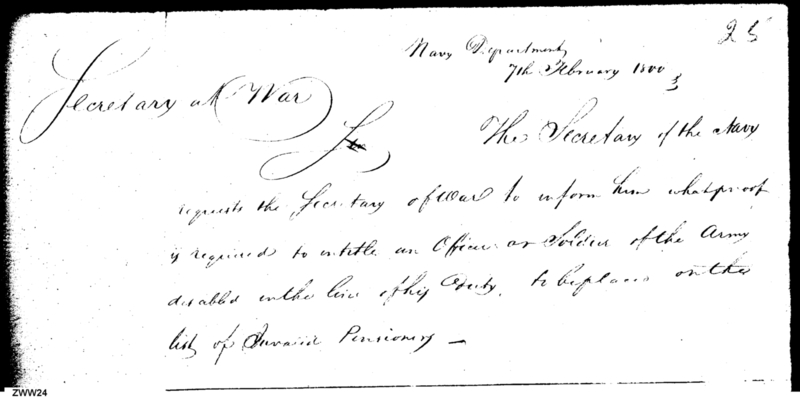 25
Navy Department
7th February 1800
Secretary at War
The Secretary of the Navy
requests the Secretary of War to inform him what proof
is required to intitle an Officer or Soldier of the Army
disabled in the line of his Duty, to be placed on the
list of Invalid Pensioners —
ZWW24